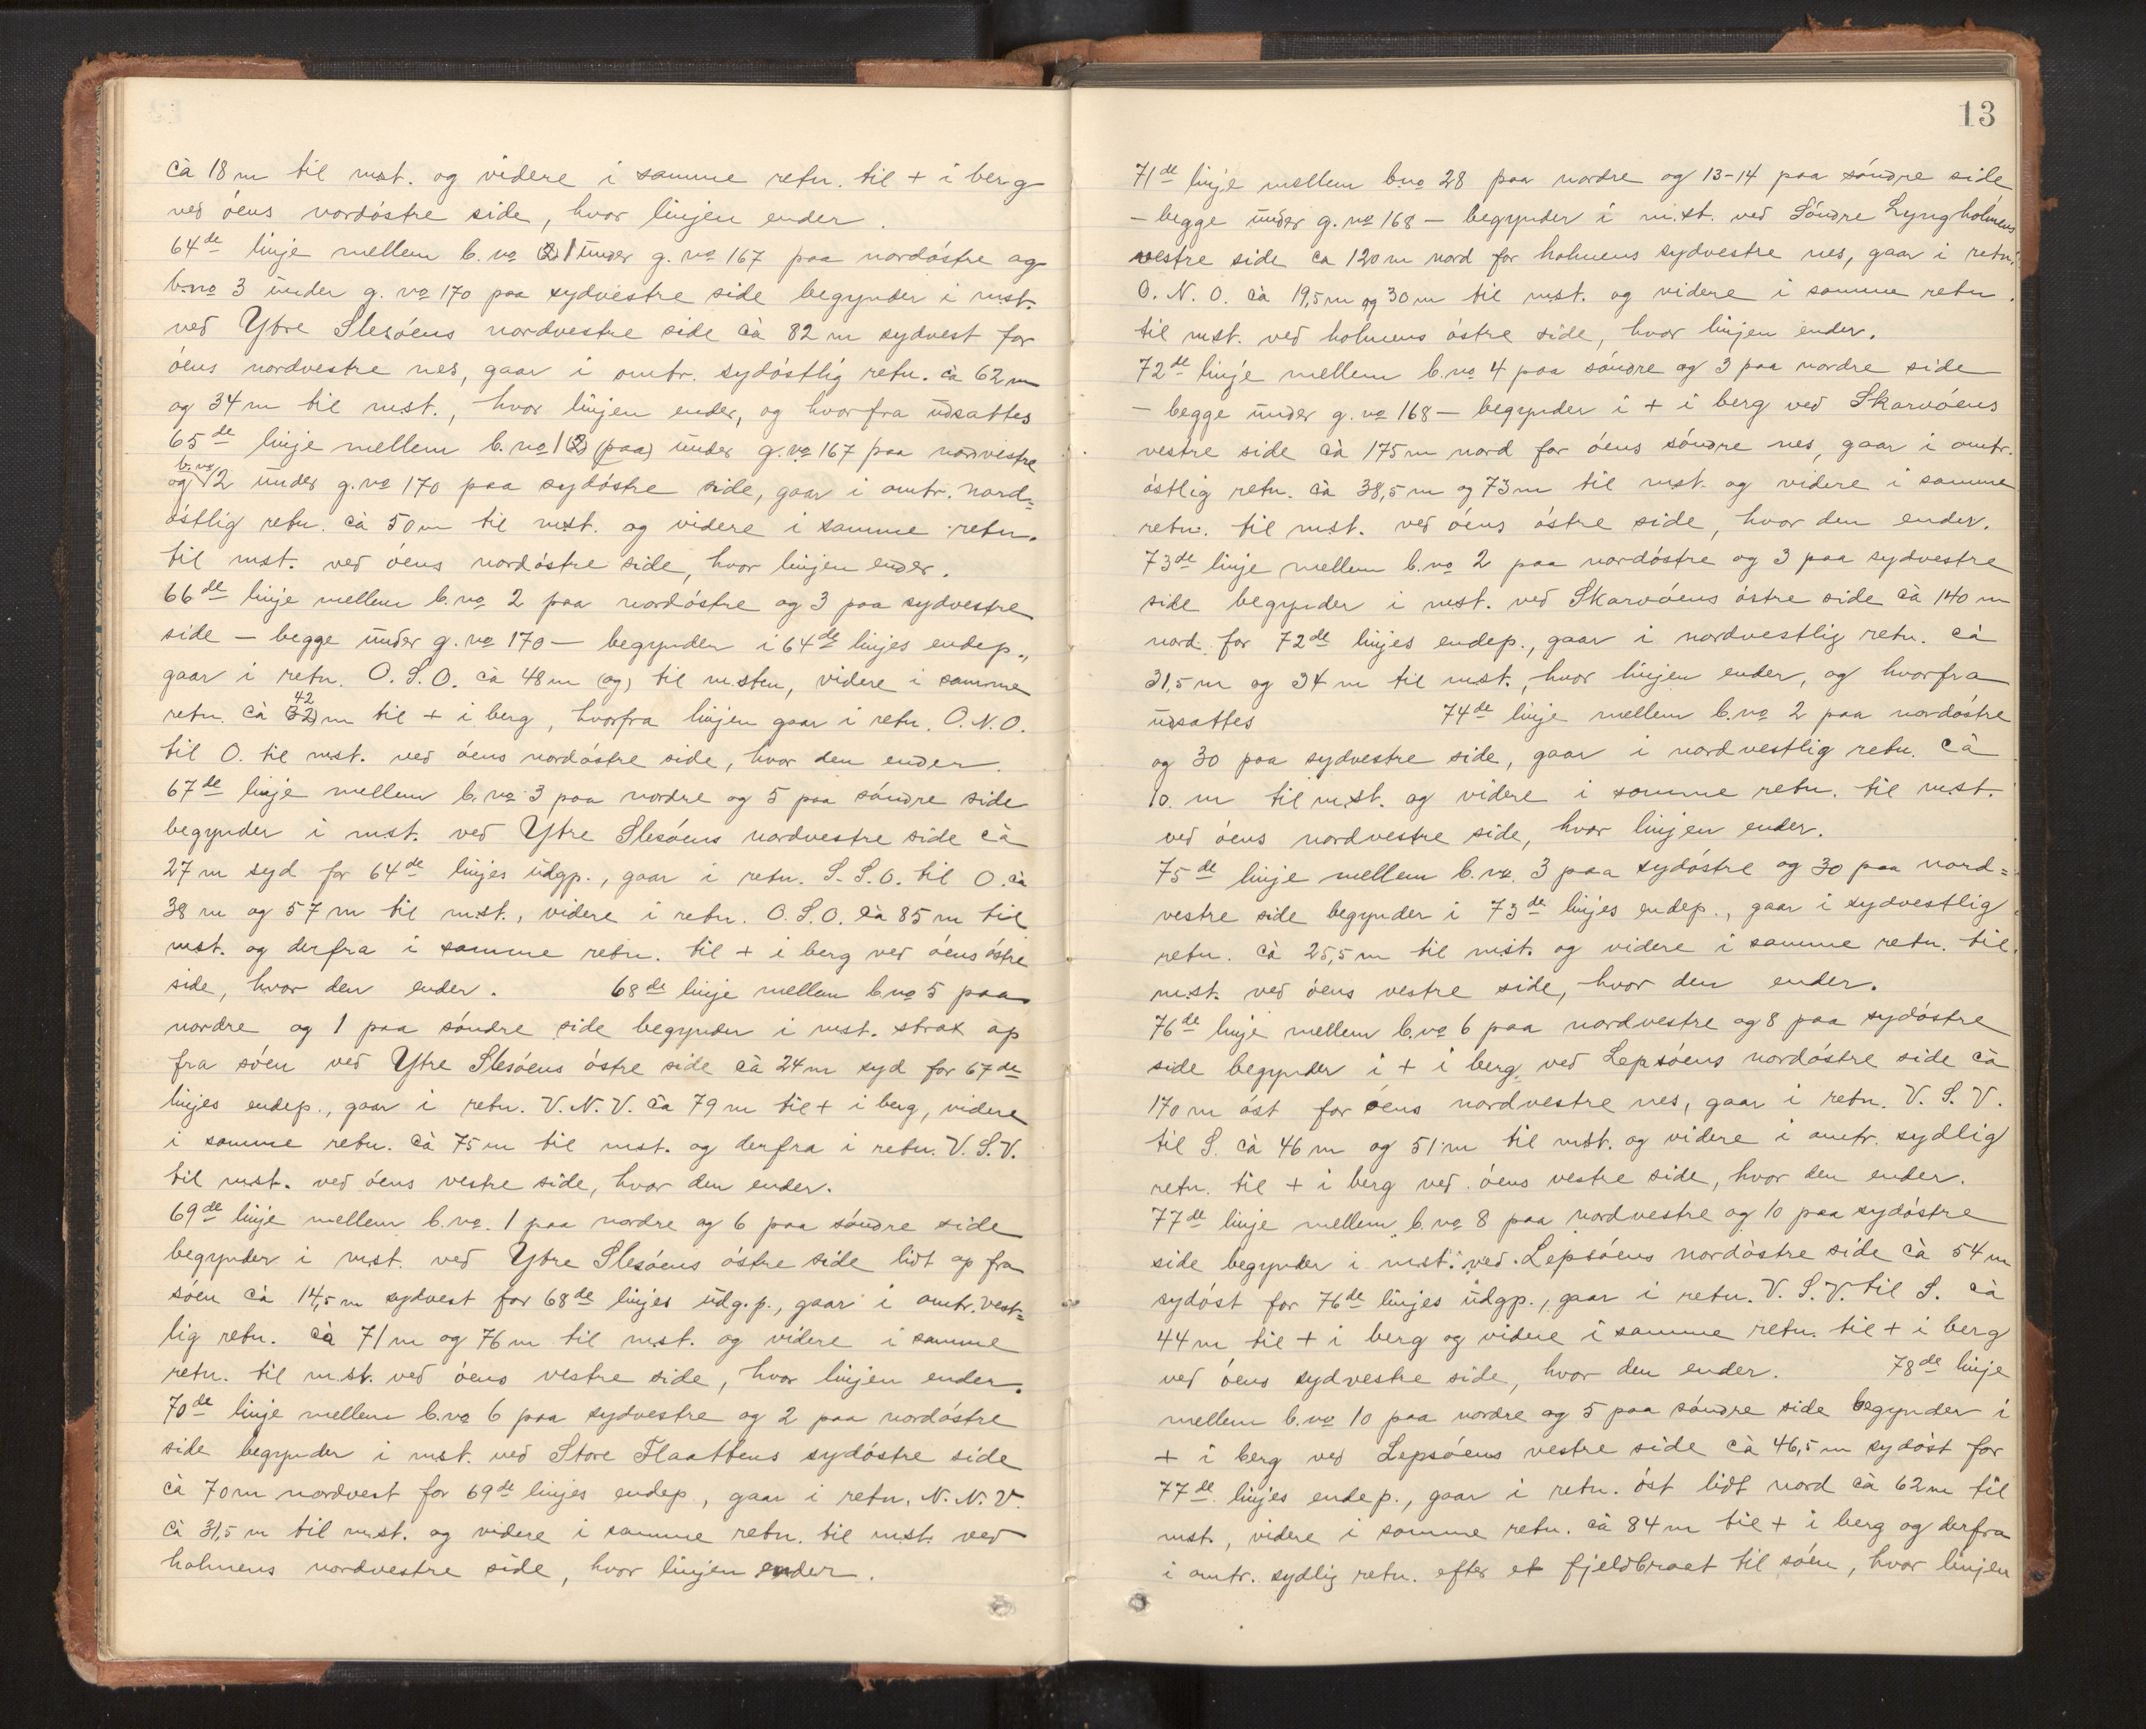 ca 18 m til mst. og videre i samme retn. til + i berg
ved öens nordöstre side, hvor linjen ender.
64de linje mellem b. no (2) 1 under g. no 167 paa nordöstre og
b. no 3 under g. no 170 paa sydvestre side begynder i mst.
ved Ytre Slesöens nordvestre side ca 82 m sydvest for
öens nordvestre nes, gaar i omtr. sydöstlig retn. ca 62 m
og 34 m til mst., hvor linjen ender, og hvorfra udsattes
65de linje mellem b. no 1 (2) (paa) under g. no 167 paa nordvestre
og b. no 2 under g. no 170 paa sydöstre side, gaar i omtr. nord=
östlig retn. ca 50 m til mst. og videre i samme retn.
til mst. ved öens nordöstre side, hvor linjen ender.
66de linje mellem b. no 2 paa nordöstre og 3 paa sydvestre
side – begge under g. no 170 – begynder i 64de linjes endep.,
gaar i retn. O. S. O. ca 48 m (og) til m.sten, videre i samme
retn. ca (32) 42 m til + i berg, hvorfra linjen gaar i retn. O. N. O.
til O. til mst. ved öens nordöstre side, hvor den ender.
67de linje mellem b. no 3 paa nordre og 5 paa söndre side
begynder i mst. ved Ytre Slesöens nordvestre side ca
27 m syd for 64de linjes udgp., gaar i retn. S. S. O. til O. ca
38 m og 57 m til mst., videre i retn. O. S. O. ca 85 m til
mst. og derfra i samme retn. til + i berg ved öens östre
side, hvor den ender. 68de linje mellem b. no 5 paa
nordre og 1 paa söndre side begynder i mst. strax op
fra söen ved Ytre Slesöens östre side ca 24 m syd for 67de
linjes endep., gaar i retn. V. N. V. ca 79 m til + i berg, videre
i samme retn. ca 75 m til mst. og derfra i retn. V. S. V.
til mst. ved öens vestre side, hvor den ender.
69de linje mellem b. no. 1 paa nordre og 6 paa söndre side
begynder i mst. ved Ytre Slesöens östre side lidt op fra
söen ca 14,5 m sydvest for 68de linjes udg.p., gaar i omtr. vest=
lig retn. ca 71 m og 76 m til mst. og videre i samme
retn. til m.st. ved öens vestre side, hvor linjen ender.
70de linje mellem b. no 6 paa sydvestre og 2 paa nordöstre
side begynder i mst. ved Store Flaattens sydöstre side
ca 70 m nordvest for 69de linjes endep., gaar i retn. N. N. V.
ca 31,5 m til m.st. og videre i samme retn. til mst. ved
holmens nordvestre side, hvor linjen ender.
13
71de linje mellem b. no 28 paa nordre og 13-14 paa söndre side
– begge under g. no 168 – begynder i m.st. ved Söndre Lyngholmens
vestre side ca 120 m nord for holmens sydvestre nes, gaar i retn.
O. N. O. ca 19,5 m og 30 m til mst. og videre i samme retn.
til mst. ved holmens östre side, hvor linjen ender.
72de linje mellem b. no 4 paa söndre og 3 paa nordre side
– begge under g. no 168 – begynder i + i berg ved Skarvöens
vestre side ca 175 m nord for öens söndre nes, gaar i omtr.
östlig retn. ca 38,5 m og 73 m til mst. og videre i samme
retn. til mst. ved öens östre side, hvor den ender.
73de linje mellem b. no 2 paa nordöstre og 3 paa sydvestre
side begynder i mst. ved Skarvöens östre side ca 140 m
nord for 72de linjes endep., gaar i nordvestlig retn. ca
31,5 m og 34 m til mst., hvor linjen ender, og hvorfra
udsattes 74de linje mellem b. no 2 paa nordöstre
og 30 paa sydvestre side, gaar i nordvestlig retn. ca
10. m til m.st. og videre i samme retn. til m.st.
ved öens nordvestre side, hvor linjen ender.
75de linje mellem b. no. 3 paa sydöstre og 30 paa nord=
vestre side begynder i 73de linjes endep., gaar i sydvestlig
retn. ca 25,5 m til mst. og videre i samme retn. til
m.st. ved öens vestre side, hvor den ender.
76de linje mellem b. no 6 paa nordvestre og 8 paa sydöstre
side begynder i + i berg ved Lepsöens nordöstre side ca
170 m öst for öens nordvestre nes, gaar i retn. V. S. V.
til S. ca 46 m og 51 m til mst. og videre i omtr. sydlig
retn. til + i berg ved öens vestre side, hvor den ender.
77de linje mellem b. no 8 paa nordvestre og 10 paa sydöstre
side begynder i mst. ved Lepsöens nordöstre side ca 54 m
sydöst for 76de linjes udgp., gaar i retn. V. S. V. til S. ca
44 m til + i berg og videre i samme retn. til + i berg
ved öens sydvestre side, hvor den ender. 78de linje
mellem b. no 10 paa nordre og 5 paa söndre side begynder i
+ i berg ved Lepsöens vestre side ca 46,5 m sydöst for
77de linjes endep., gaar i retn. öst lidt nord ca 62 m til
mst., videre i samme retn. ca 84 m til + i berg og derfra
i omtr. sydlig retn. efter et fjeldbraat til söen, hvor linjen